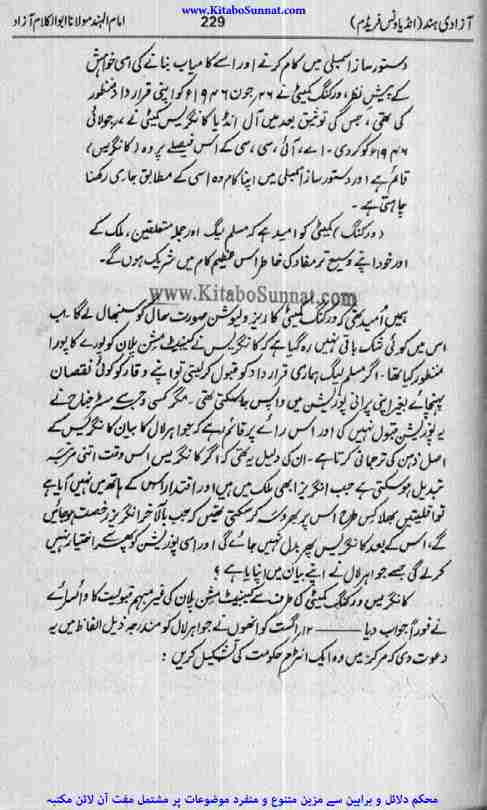 www.KitaboSunnat.com
آزادی ہند (انڈیا ونس فریڈم) 229 امام الہند مولانا ابوالکلام آزاد
دستور ساز اسمبلی میں کام کرنے اور اسے کامیاب بنانے کی اسی خواہش
کے پیش نظر، ورکنگ کمیٹی نے ۲۶ جون ۱۹۴۶ء کو اپنی قرار داد منظور
کی تھی، جس کی توثیق بعد میں آل انڈیا کانگریس کمیٹی نے ۷ر جولائی
۱۹۴۶ء کو کر دی۔ اے، آئی، سی، سی کے اس فیصلے پر وہ (کانگریس)
قائم ہے اور دستور ساز اسمبلی میں اپنا کام وہ اسی کے مطابق جاری رکھنا
چاہتی ہے۔
(ورکنگ) کمیٹی کو امید ہے کہ مسلم لیگ اور جملہ متعلقین، ملک کے
اور خود اپنے وسیع تر مفاد کی خاطر اس عظیم کام میں شریک ہوں گے۔
www.KitaboSunnat.com
ہمیں اُمید تھی کہ ورکنگ کمیٹی کا ریزولیوشن صورت حال کو سنبھال لے گا۔ اب
اس میں کوئی شک باقی نہیں رہ گیا ہے کہ کانگریس نے کیبینٹ مشن پلان کو پورے کا پورا
منظور کیا تھا۔ اگر مسلم لیگ ہماری قرار داد کو قبول کر لیتی تو اپنے وقار کو کوئی نقصان
پہنچائے بغیر اپنی پرانی پوزیشن میں واپس جا سکتی تھی۔ مگر کسی وجہ سے مسٹر جناح نے
یہ پوزیشن قبول نہیں کی اور اس رائے پر قائم رہے کہ جواہر لال کا بیان کانگریس کے
اصل ذہن کی ترجمانی کرتا ہے۔ ان کی دلیل یہ تھی کہ اگر کانگریس اس وقت اتنی مرتبہ
تبدیل ہو سکتی ہے جب انگریز ابھی ملک میں ہیں اور اقتدار اس کے ہاتھ میں نہیں آیا ہے
تو اقلیتیں بھلا کس طرح اس پر بھروسہ کر سکتی تھیں کہ جب بالآخر انگریز رخصت ہو جائیں
گے، اس کے بعد کانگریس پھر بدل نہیں جائے گی اور اسی پوزیشن کو پھر سے اختیار نہیں
کر لے گی جسے جواہر لال نے اپنے بیان میں اپنایا ہے؟
کانگریس ورکنگ کمیٹی کی طرف سے کیبینٹ مشن پلان کی غیر مبہم قبولیت کا وائسرائے
نے فوراً جواب دیا ——— ۱۲ر اگست کو انھوں نے جواہر لال کو مندرجہ ذیل الفاظ میں یہ
دعوت دی کہ مرکز میں وہ ایک انٹرم حکومت کی تشکیل کریں:
محکم دلائل و براہین سے مزین متنوع و منفرد موضوعات پر مشتمل مفت آن لائن مکتبہ